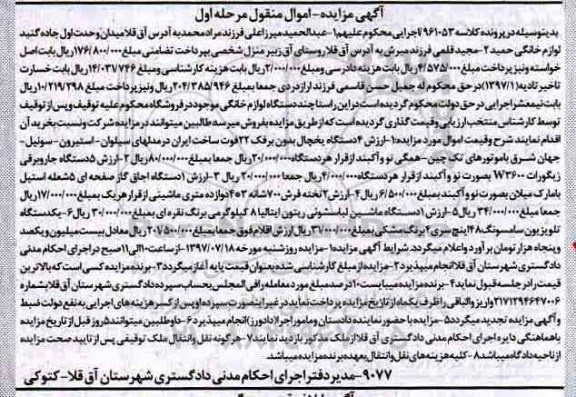 آگهی مزایده - اموال منقول مرحله اول
بدینوسیله در پرونده کلاسه ۹۶۱۰۵۳ اجرایی محکوم علیهم ۱- عبدالحمید میرزاعلی فرزند مراد محمد به آدرس آق قلا میدان وحدت اول جاده گنبد
لوازم خانگی حمید ۲- مجید قلمی فرزند میرش به آدرس آق قلا روستای آق زبیر منزل شخصی بپرداخت تضامنی مبلغ ۱۷۶/۸۰۰/۰۰۰ ریال بابت اصل
خواسته و نیز پرداخت مبلغ ۴/۵۷۵/۰۰۰ ریال بابت هزینه دادرسی و مبلغ ۲/۰۰۰/۰۰۰ ریال بابت هزینه کارشناسی و مبلغ ۱۴/۰۳۷/۷۴۶ ریال بابت خسارت
تاخیر تادیه (۱۳۹۷/۱) در حق محکوم له جمیل حسن قاسمی فرزند اراز دردی جمعا بمبلغ ۲۰۴/۳۸۵/۹۴۶ ریال و نیز پرداخت مبلغ ۱۰/۲۱۹/۲۹۸ ریال
بابت نیمعشر اجرایی در حق دولت محکوم گردیده است در این راستا چند دستگاه لوازم خانگی موجود در فروشگاه محکوم علیه توقیف و پس از توقیف
توسط کارشناس منتخب ارزیابی و قیمت گذاری گردیده است که از طریق مزایده بفروش میرسد طالبین میتوانند در مزایده شرکت و نسبت بخرید آن
اقدام نمایند شرح و قیمت اموال مورد مزایده: ۱- ارزش ۴ دستگاه یخچال بدون برفک ۲۲ فوت ساخت ایران در مدلهای سیلوان - استیرون - سونیل -
جهان شرق با موتورهای تک چین - همگی نو و آکبند از قرار هر دستگاه ۲۰/۰۰۰/۰۰۰ ریال جمعا بمبلغ ۸۰/۰۰۰/۰۰۰ ریال ۲- ارزش ۵ دستگاه جاروبرقی
زیگورات W۳۶۰۰ بصورت نو و آکبند از قرار هر دستگاه ۴/۰۰۰/۰۰۰ ریال جمعا ۲۰/۰۰۰/۰۰۰ ریال ۳- ارزش ۱ دستگاه اجاق گاز صفحه ای ۵ شعله استیل
با مارک میلان بصورت نو و آکبند بمبلغ ۶/۵۰۰/۰۰۰ ریال ۴- ارزش ۲ تخته فرش ۷۰۰ شانه ۴۰۳ دوازده متری ماشینی از قرار هر یک بمبلغ ۱۷/۰۰۰/۰۰۰ ریال
جمعا مبلغ ۳۴/۰۰۰/۰۰۰ ریال ۵- ارزش ۱ دستگاه ماشین لباسشوئی ریتون ایتالیا ۸ کیلوگرمی برنگ نقره ای بمبلغ ۳۰/۰۰۰/۰۰۰ ریال ۶- یکدستگاه
تلویزیون سامسونگ ۴۸ اینچ سری ۴ برنگ مشکی بمبلغ ۳۷/۰۰۰/۰۰۰ ریال ارزش اقلام فوق جمعا بمبلغ ۲۰۷/۵۰۰/۰۰۰ ریال معادل بیست میلیون و یکصد
و پنجاه هزار تومان برآورد و اعلام میگردد. شرایط آگهی مزایده ۱- مزایده روز شنبه مورخه ۱۳۹۷/۰۷/۱۸ از ساعت ۱۰ الی ۱۱ صبح در اجرای احکام مدنی
دادگستری شهرستان آق قلا انجام میپذیرد ۲- مزایده از مبلغ کارشناسی شده بعنوان قیمت پایه آغاز میگردد ۳- برنده مزایده کسی است که بالاترین
قیمت را در جلسه قبول نماید ۴- برنده مزایده میبایست ۱۰ درصد مبلغ مورد معامله را فی المجلس بحساب سپرده دادگستری شهرستان آق قلا بشماره
۲۱۷۱۲۹۴۶۴۷۰۰۶ واریز و الباقی را ظرف یکماه از تاریخ مزایده پرداخت نماید در غیر اینصورت سپرده او پس از کسر هزینه های اجرایی به نفع دولت ضبط
و آگهی مزایده تجدید میگردد ۵- مزایده با حضور نماینده دادستان و مامور اجرا (دادورز) انجام میپذیرد ۶- داوطلبین میتوانند ۵ روز قبل از تاریخ مزایده
با هماهنگی دایره اجرای احکام مدنی دادگستری آق قلا از ملک مذکور بازدید نمایند ۷- هرگونه نقل و انتقال ملک توقیفی پس از تایید صحت مزایده
از ناحیه دادگاه میباشد ۸- کلیه هزینه های نقل و انتقال بعهده برنده مزایده میباشد.
۹۰۷۷- مدیر دفتر اجرای احکام مدنی دادگستری شهرستان آق قلا - کتوکی